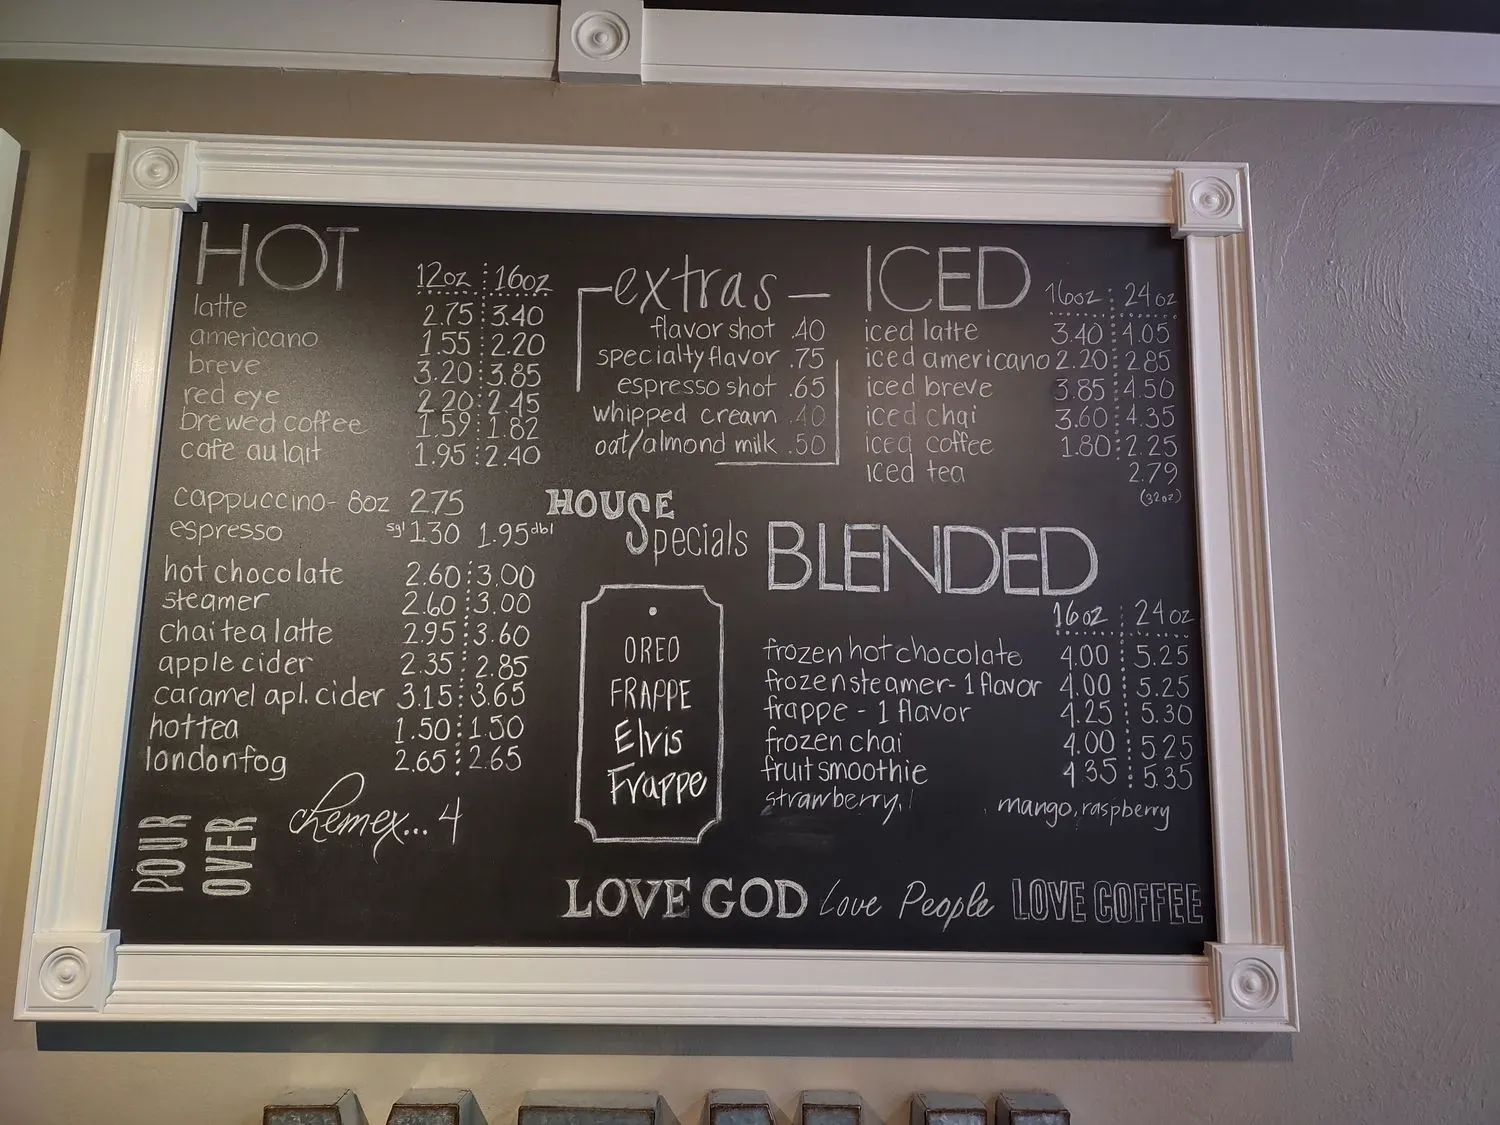 HOT
12oz 16oz
latte 2.75 3.40
americano 1.55 2.20
breve 3.20 3.85
red eye 2.20 2.45
brewed coffee 1.59 1.82
cafe au lait 1.95 2.40
cappuccino- 8oz 2.75
espresso sgl 1.30 1.95 dbl
hot chocolate 2.60 3.00
steamer 2.60 3.00
chai tea latte 2.95 3.60
apple cider 2.35 2.85
caramel apl. cider 3.15 3.65
hot tea 1.50 1.50
london fog 2.65 2.65
POUR
OVER
chemex... 4
extras
flavor shot .40
specialty flavor .75
espresso shot .65
whipped cream .40
oat/almond milk .50
HOUSE
Specials
OREO
FRAPPE
Elvis
Frappe
ICED
16oz 24oz
iced latte 3.40 4.05
iced americano 2.20 2.85
iced breve 3.85 4.50
iced chai 3.60 4.35
iced coffee 1.80 2.25
iced tea 2.79
(32oz)
BLENDED
16oz 24oz
frozen hot chocolate 4.00 5.25
frozen steamer- 1 flavor 4.00 5.25
frappe - 1 flavor 4.25 5.30
frozen chai 4.00 5.25
fruit smoothie 4.35 5.35
strawberry, mango, raspberry
LOVE GOD Love People LOVE COFFEE